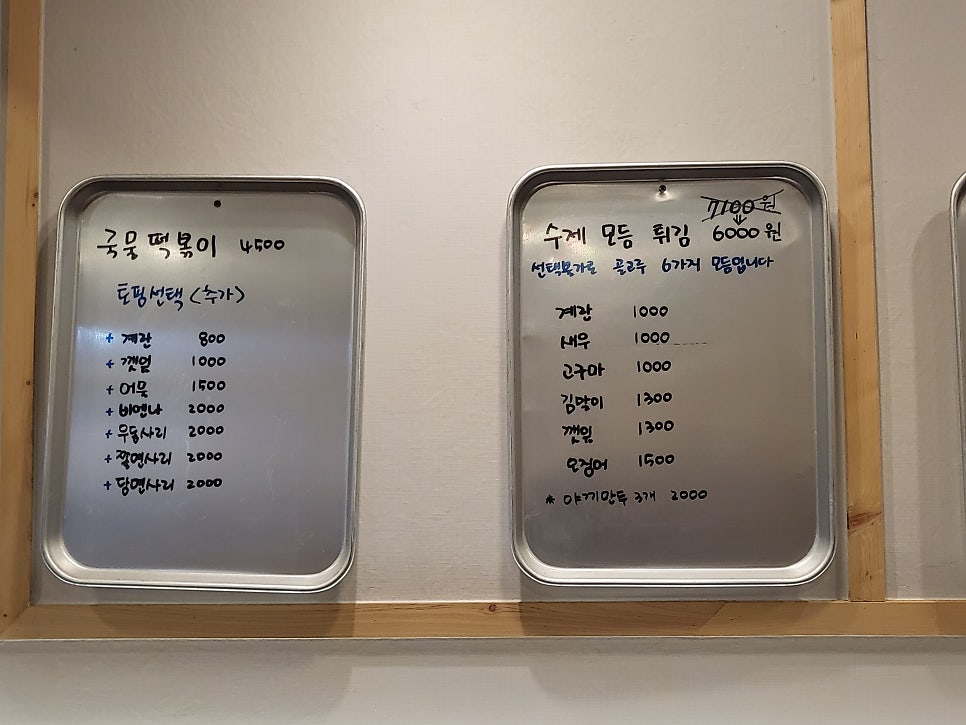 국물떡볶이 4500
토핑선택 (추가)
+ 계란 800
+ 깻잎 1000
+ 어묵 1500
+ 비엔나 2000
+ 우동사리 2000
+ 쫄면사리 2000
+ 당면사리 2000
7100원
수제 모듬 튀김 6000원
선택불가로 골고루 6가지 모듬입니다
계란 1000
새우 1000
고구마 1000
김말이 1300
깻잎 1300
오징어 1500
* 야끼만두 3개 2000